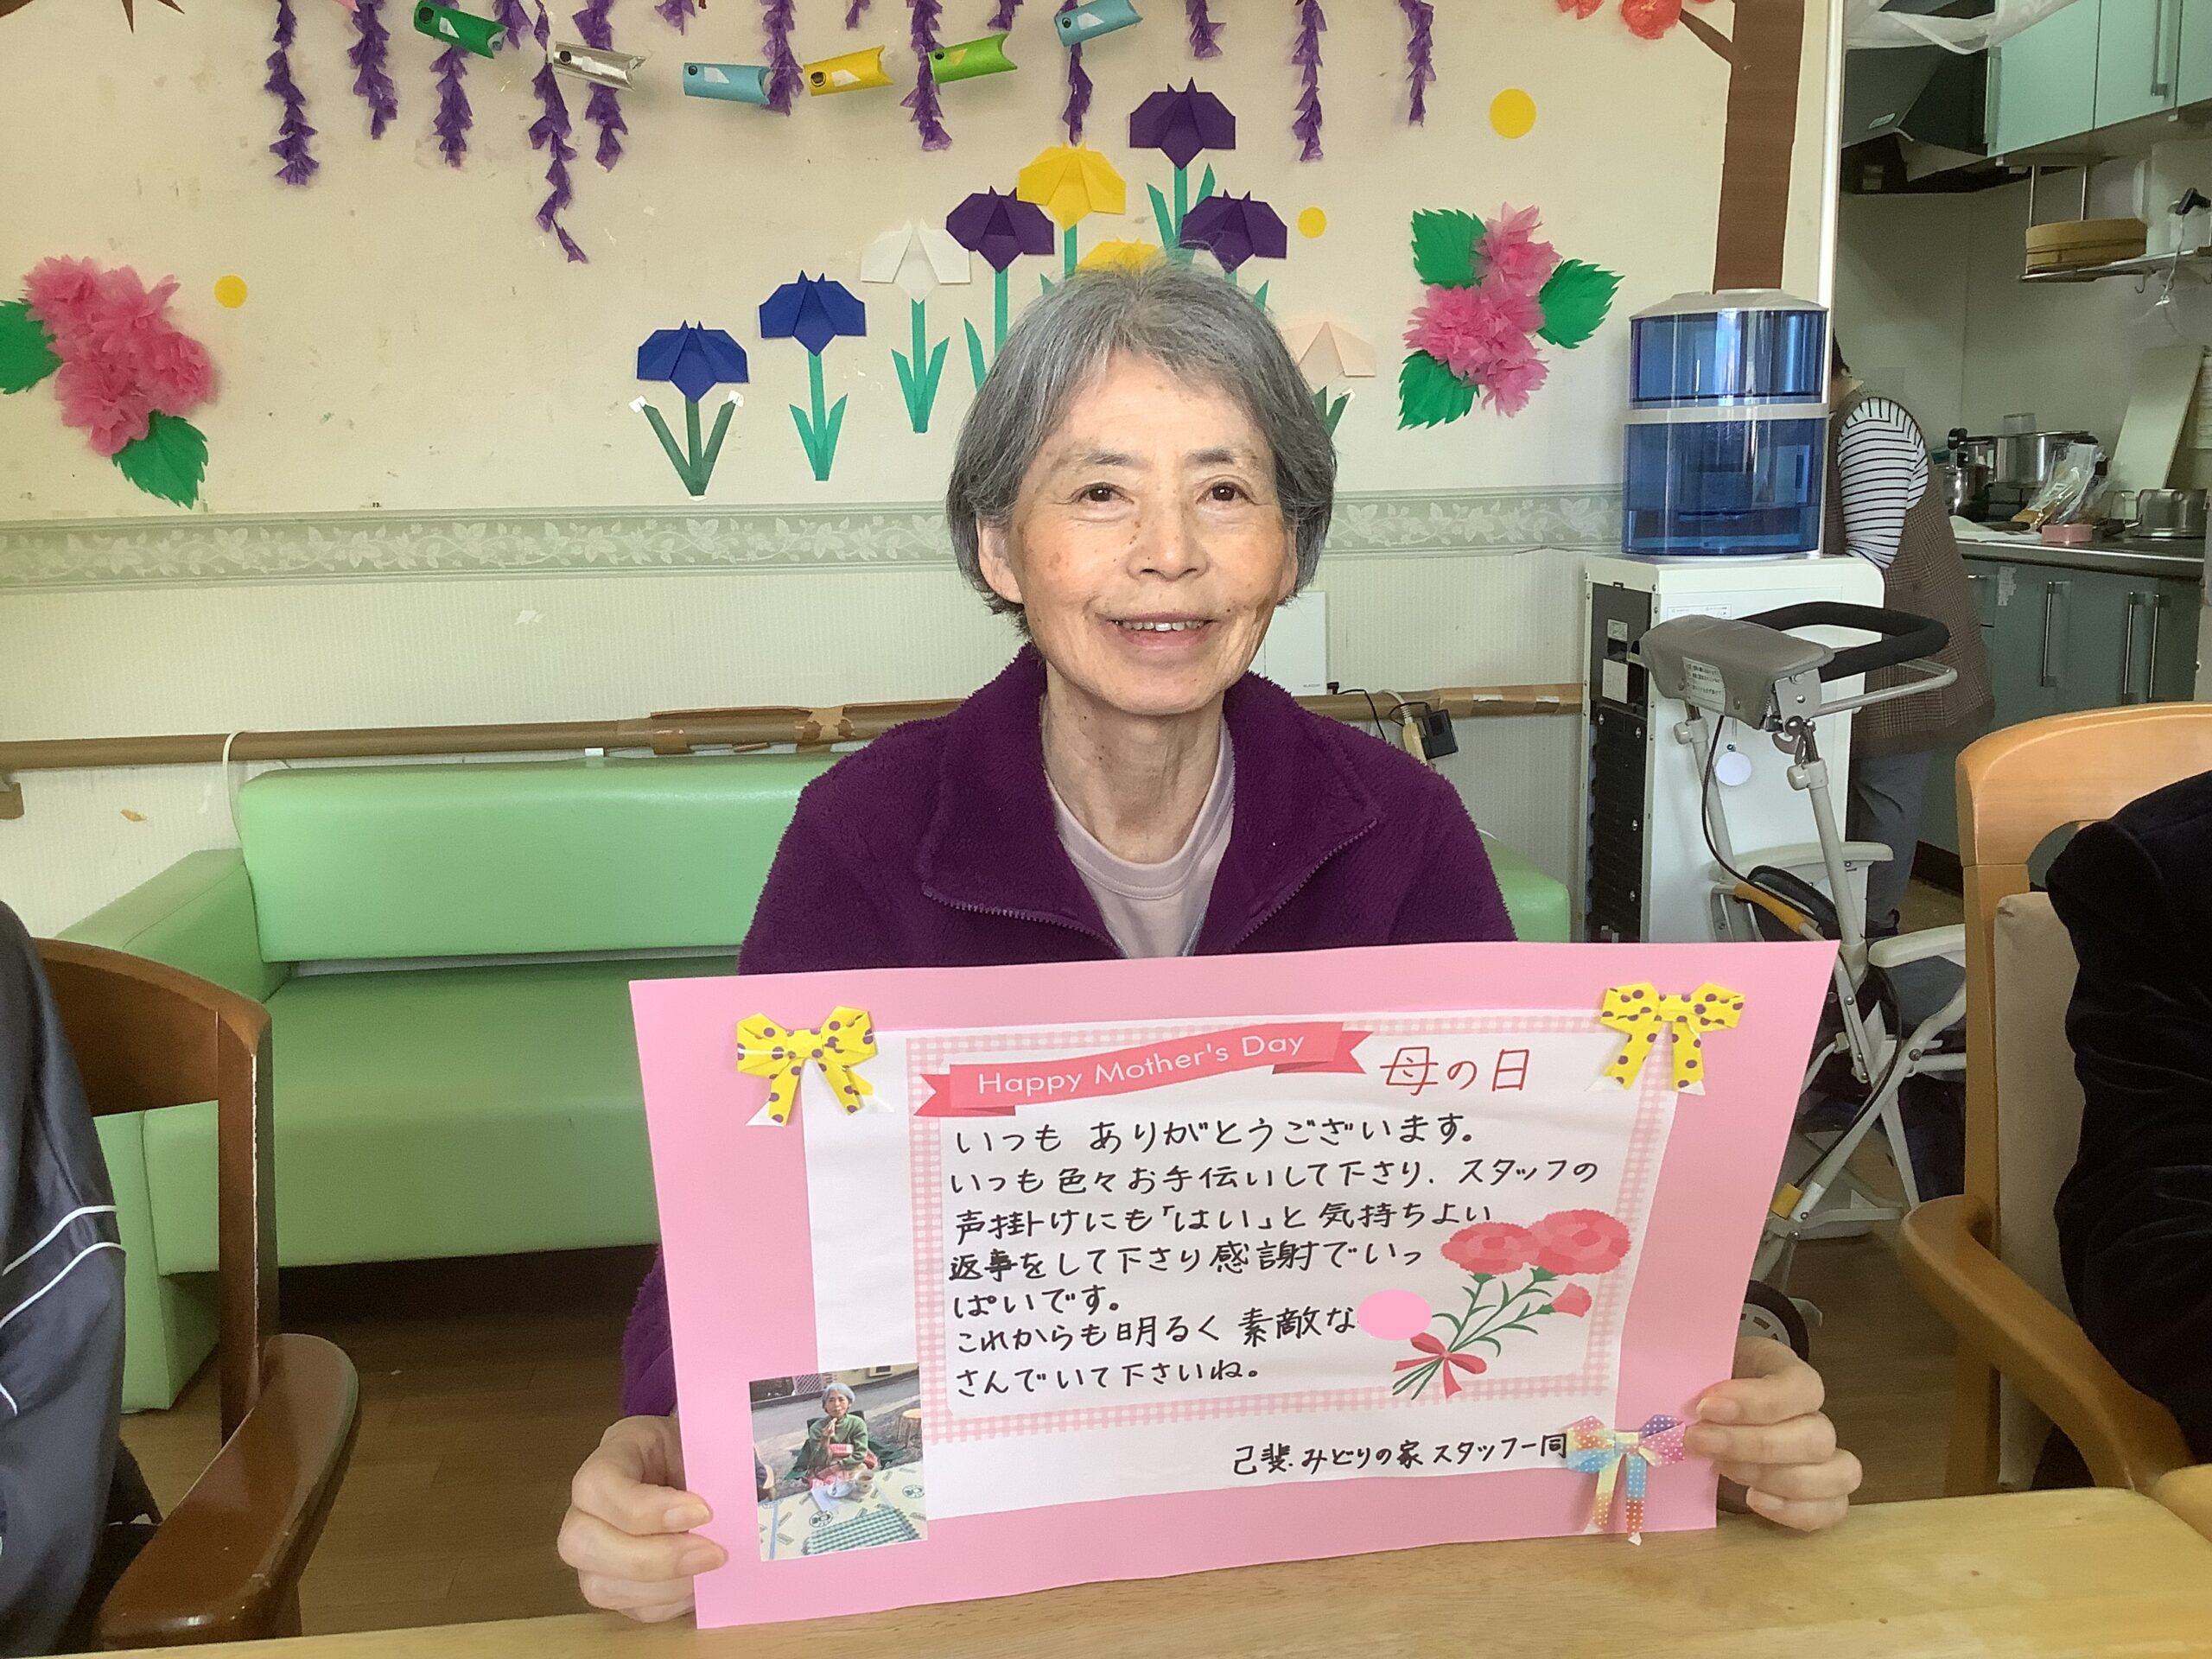 Happy Mother's Day 母の日
いつも ありがとうございます。
いつも色々お手伝いして下さり、スタッフの
声掛けにも「はい」と気持ちよい
返事をして下さり感謝でいっ
ぱいです。
これからも明るく素敵な
さんでいて下さいね。
己斐みどりの家スタッフ一同